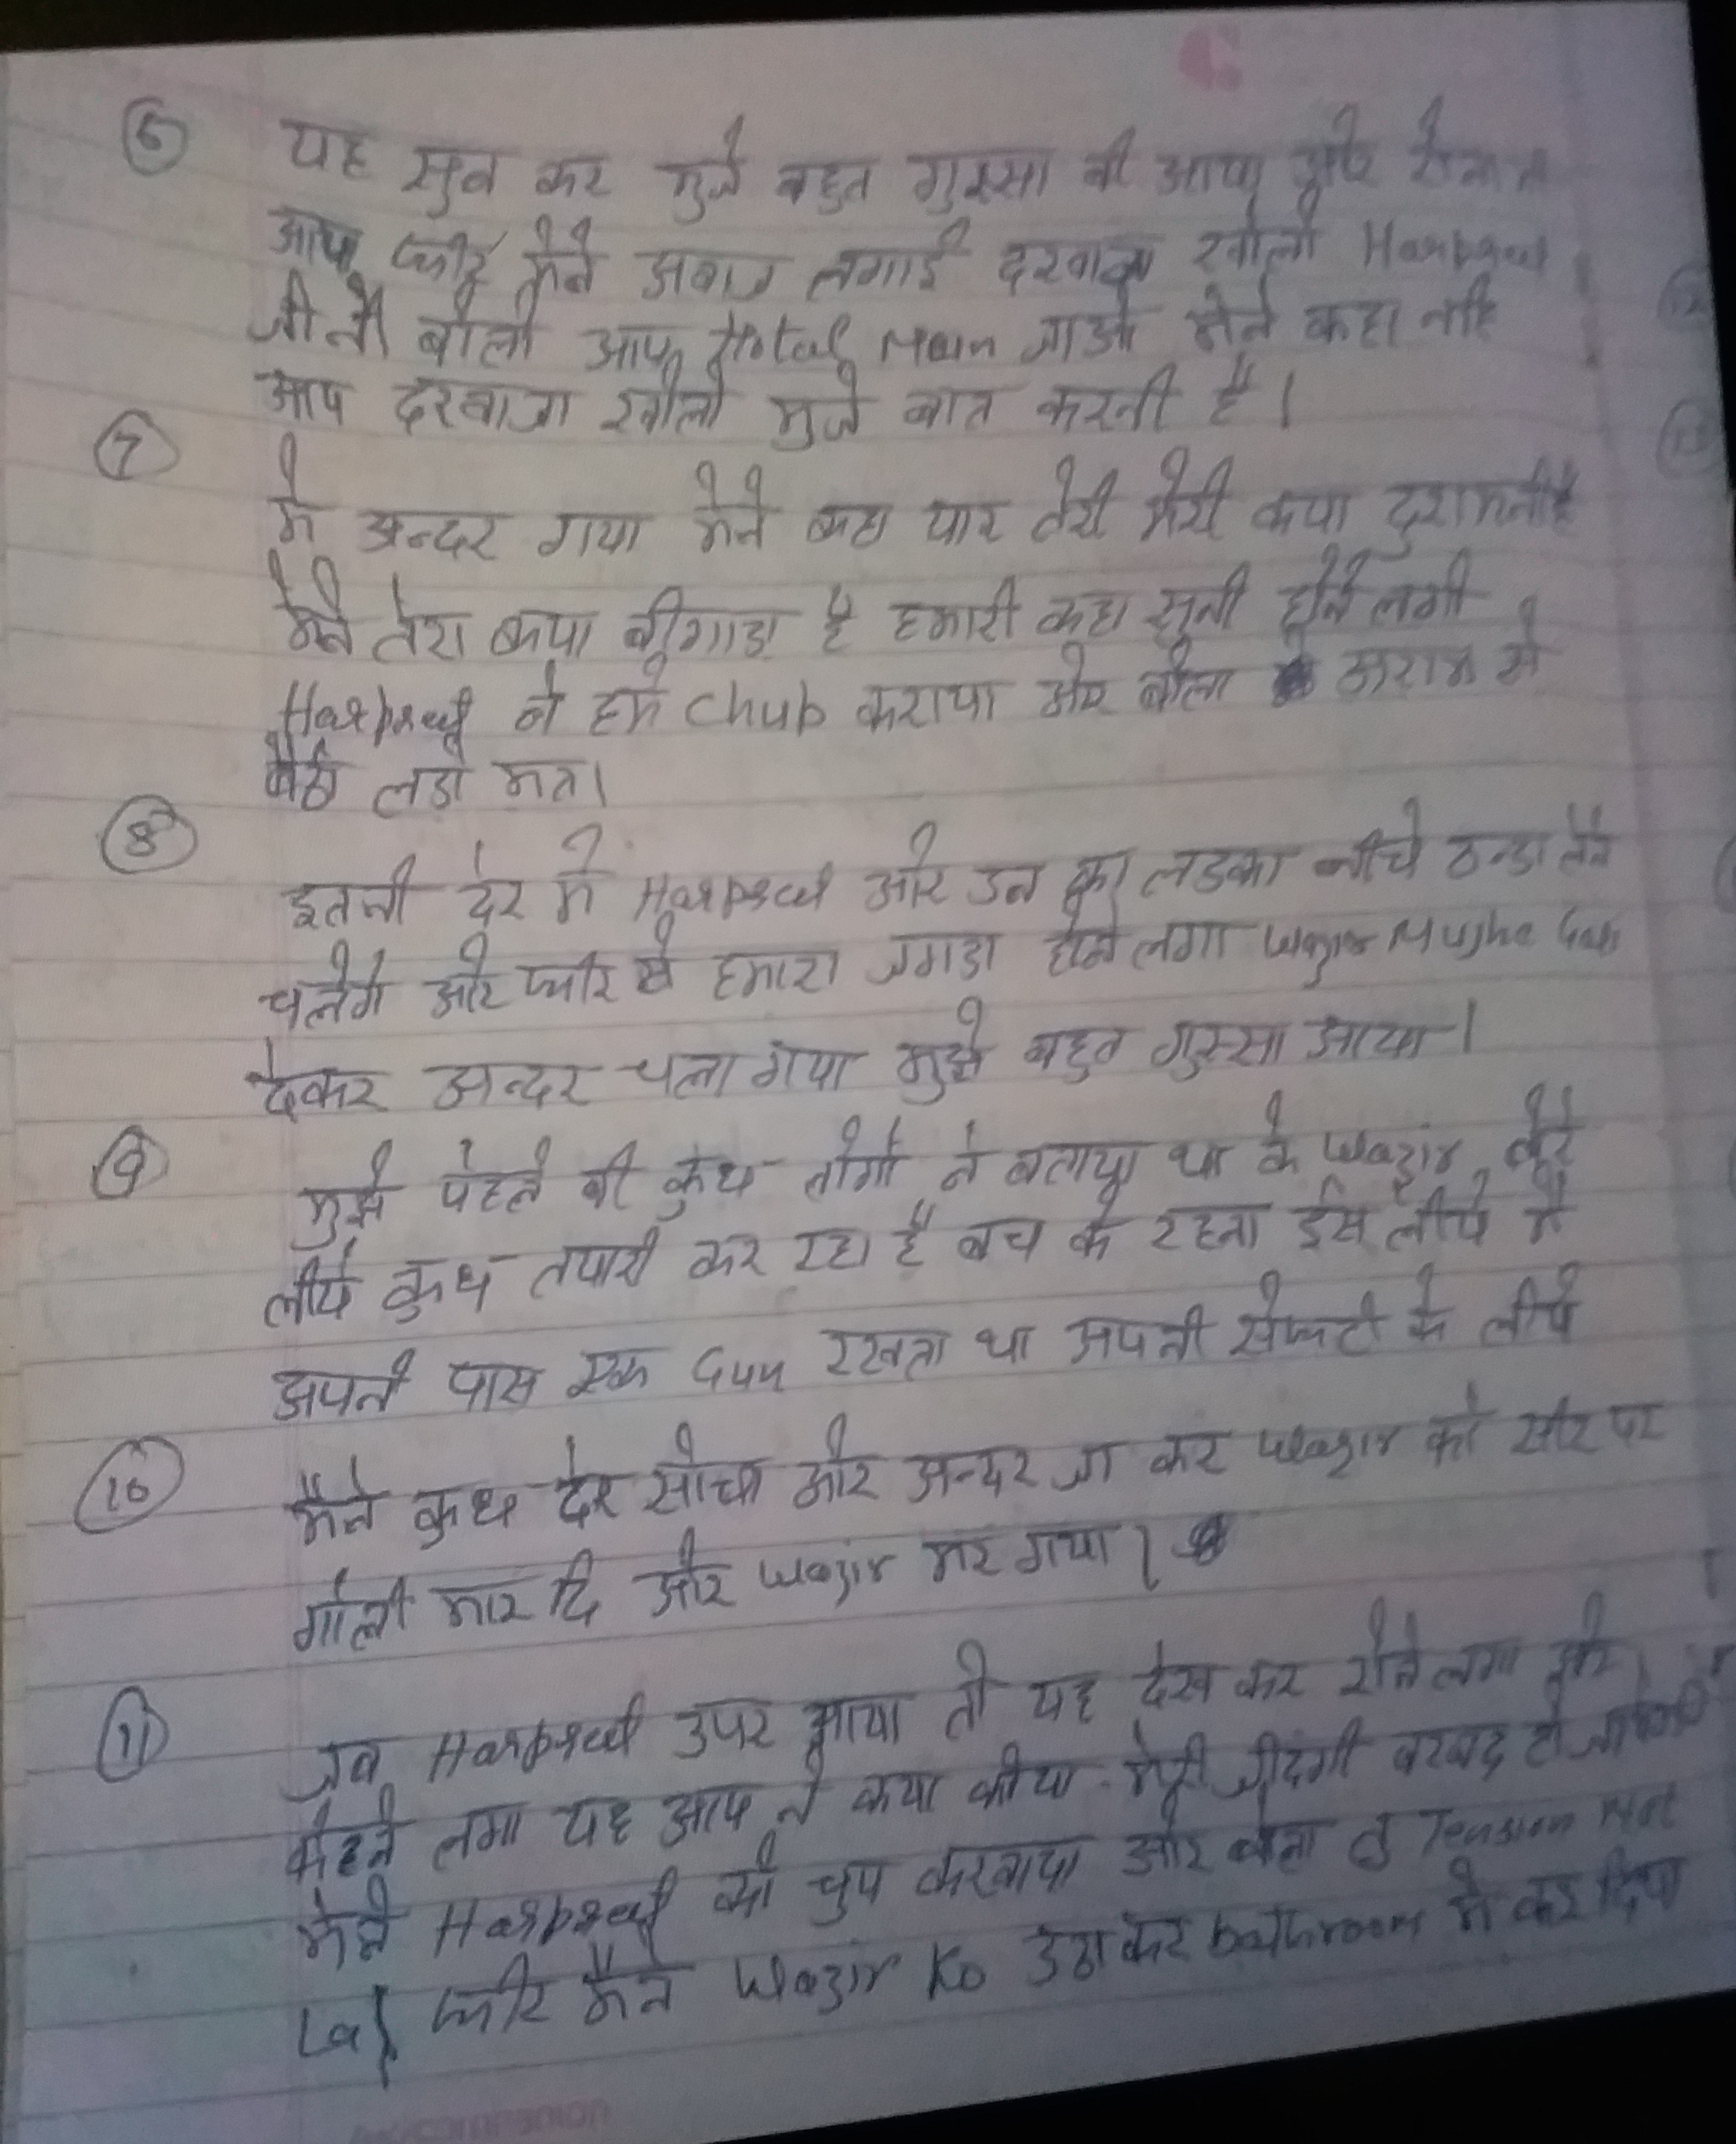 6 यह सुन कर मुजे बहुत गुस्सा बी आया और
आया फीर मेने अवाज लगाई दरवाजा खोलो Harpreet
जी ने बोला आप Hotal Main जाओ मेने कहा नहि
आप दरवाजा खोलो मुजे बात करनी है।
7 मे अन्दर गया मेने कहा यार तेरी मेरी कया दुशमनी है
मेने तेरा कया बीगाडा है हमारी कहा सुनी होने लगी
Harpreet ने हमे Chub कराया ओर बोला अराम से
बैठो लडो मत।
8 इतनी देर मे Harpreet ओर उन का लडका नीचे ठन्डा लेने
चलेगे ओर फीर से हमारा जगडा होने लगा Wazir Mujhe Gali
देकर अन्दर चला गया मुझे बहुत गुस्सा आया।
9 मुझे पेहले बी कुछ लोगो ने बताया था के Wazir तेरे
लीये कुछ तयारी कर रहा है बच के रहना ईस लीये मै
अपने पास एक Gun रखता था अपनी सेफटी के लीये
10 मैने कुछ देर सोचा ओर अन्दर जा कर Wazir को सीर पर
गोली मार दि और Wazir मर गया।
11 जब Harpreet उपर आया तो यह देख कर रोने लगा ओर
केहने लगा यह आप ने कया कीया मेरी जीदगी बरबाद हो जायेगी
मेने Harpreet को चुप करवाया ओर बोला तु Tension Not
Le फीर मैने Wazir Ko उठा कर bathroom मे कर दिया